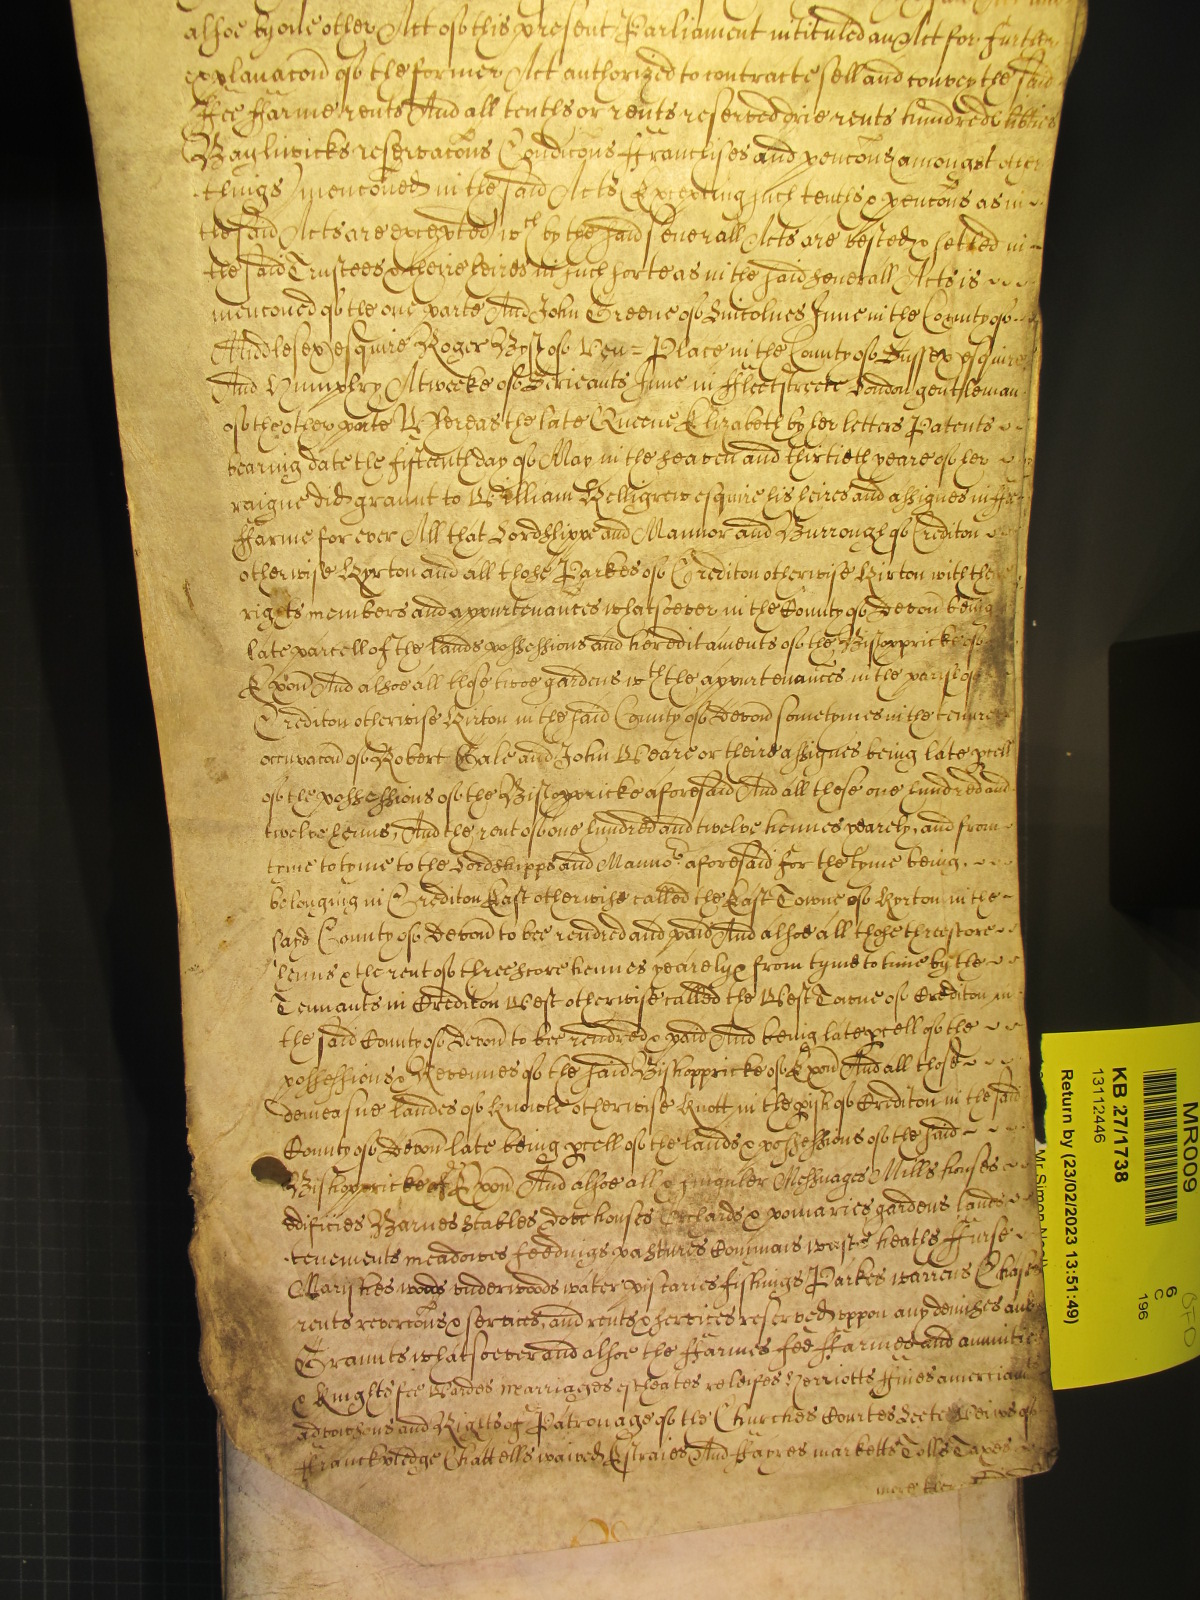 alsoe by one other Act of this present Parliament intituled an Act for further
explanacon of the former Act authorized to contracte sell and convey the said
ffee ffarme rents And all tenths or rents reserved drie rents hundreds libties
Bayliwicks reservacons Condicons ffranchises and pencons amongst other
things menconed in the said Acts Excepting such tenths & pencons as in
the said Acts are excepted wch by the said severall Acts are vested & setled in
the said Trustees & theire heires in such sorte as in the said severall Acts is
menconed of the one parte And John Greene of Lincolnes Inne in the County of
Middlesex esquire Roger Byst of Ven = Place in the County of Sussex esquire
And Humphry Atweeke of Serieants Inne in ffleetstreete London gentleman
of the other parte Whereas the late Queene Elizabeth by her letters Patents
bearing date the fifteenth day of May in the seaven and thirtieth yeare of her
raigne did graunt to William Killigrew esquire his heires and assignes in ffee
ffarme for ever All that Lordshippe and Mannor and Burrough of Crediton
otherwise Kyrton and all those Parkes of Crediton otherwise Kirton with the
rights members and appurtenances whatsoever in the County of Devon being
late parcell of the lands possessions and hereditaments of the Bishoppricke of
Exon And alsoe all those twoe gardens wth the appurtenances in the parish of
Crediton otherwise Kirton in the said County of Devon sometymes in the tenure
occupacon of Robert Gale and John Weare or theire assignes being late pcell
of the possessions of the Bishoppricke aforesaid And all those one hundred and
twelve henns, And the rent of one hundred and twelve hennes yearely, and from
tyme to tyme to the Lordshipps and Manno:r aforesaid for the tyme being
belonging in Crediton East otherwise called the East Towne of Kyrton in the
said County of Devon to bee rendred and paid And alsoe all those threescore
henns & the rent of threescore hennes yearely & from tyme to time by the
Tennants in Crediton West otherwise called the West Towne of Crediton in
the said County of Devon to bee rendred & paid And being late pcell of the
possessions & Revenues of the said Bishoppricke of Exon And all those
demeasne landes of Knowle otherwise Knott in the pish of Crediton in the said
County of Devon late being pcell of the lands & possessions of the said
Bishoppricke of Exon And alsoe all & singuler Messuages Mills houses
edificies Barnes Stables Dovehouses Orchards & pomaries gardens lands
tenements meadowes feedings pastures Commons wasts heaths ffurse
Marishes woods underwoods water pistaries fishings Parkes warrens Chases
rents revercons & services, and rents & services reserved uppon any demises and
Graunts whatsoever and alsoe the ffarmes fee ffarmes and annuitie
& Knights fee Wardes marriages escheates releifes Herriotts ffines amerciam
advowsons and Rights of Patronage of the Churches Courtes Leete Veiws of
ffranckpledge Chattells waived Estraies And ffayres marketts Tolls Taxes
MR009
6
C
196
KB 27/1738
13112446
Return by (23/02/2023 13:51:49)
Mr Simon